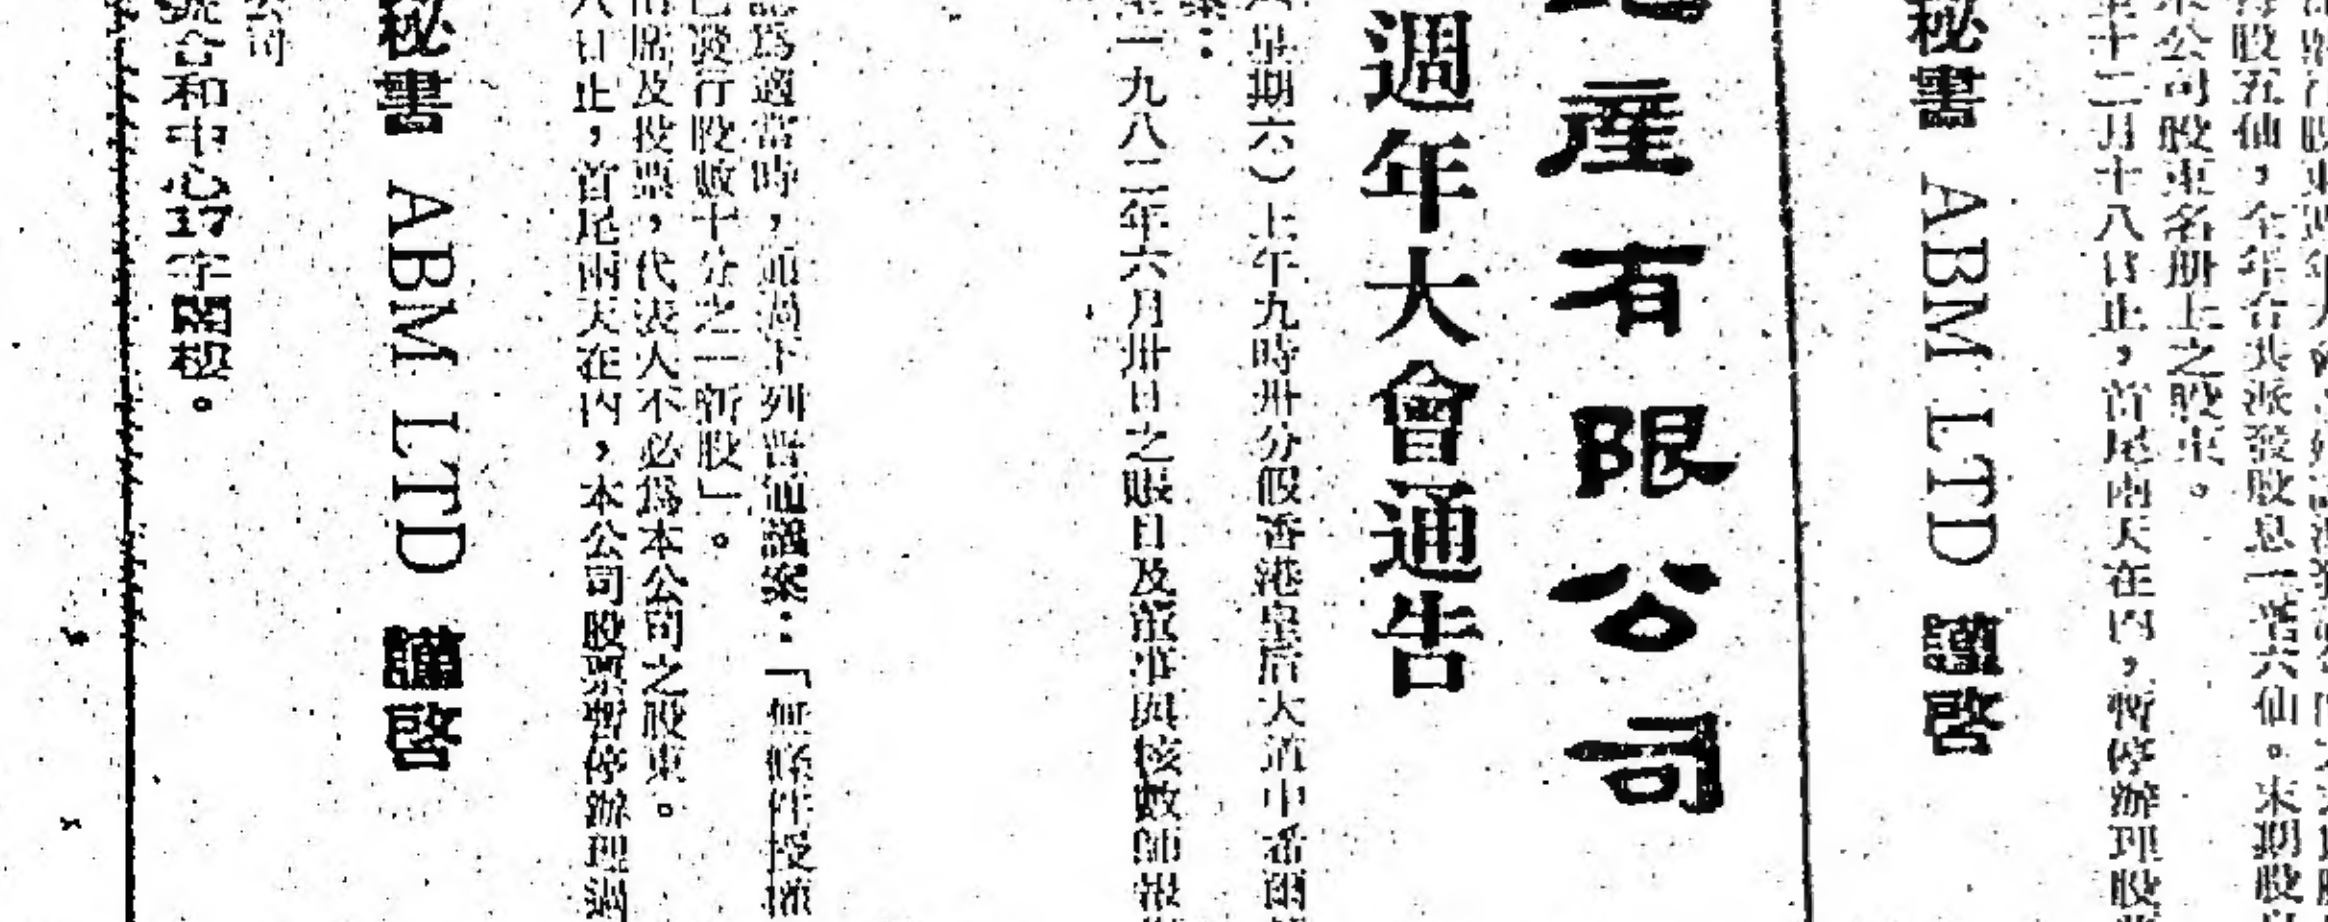 每股五仙，全年合共派發股息一毫六仙。末期股
本公司股東名册上之股東。
至十二月十八日止，首尾兩天在內，暫停辦理股
秘書 ABM LTD 謹啓
產有限公司
週年大會通告
星期六）上午九時卅分假香港皇后大道中希爾
：
至一九八二年六月卅日之賬目及董事與核數師報
認爲適當時，通過下列普通議案：「無條件授權
已發行股數十分之一新股」。
出席及投票，代表人不必爲本公司之股東。
八日止，首尾兩天在內，本公司股票暫停辦理過
秘書 ABM LTD 謹啓
公司
號合和中心